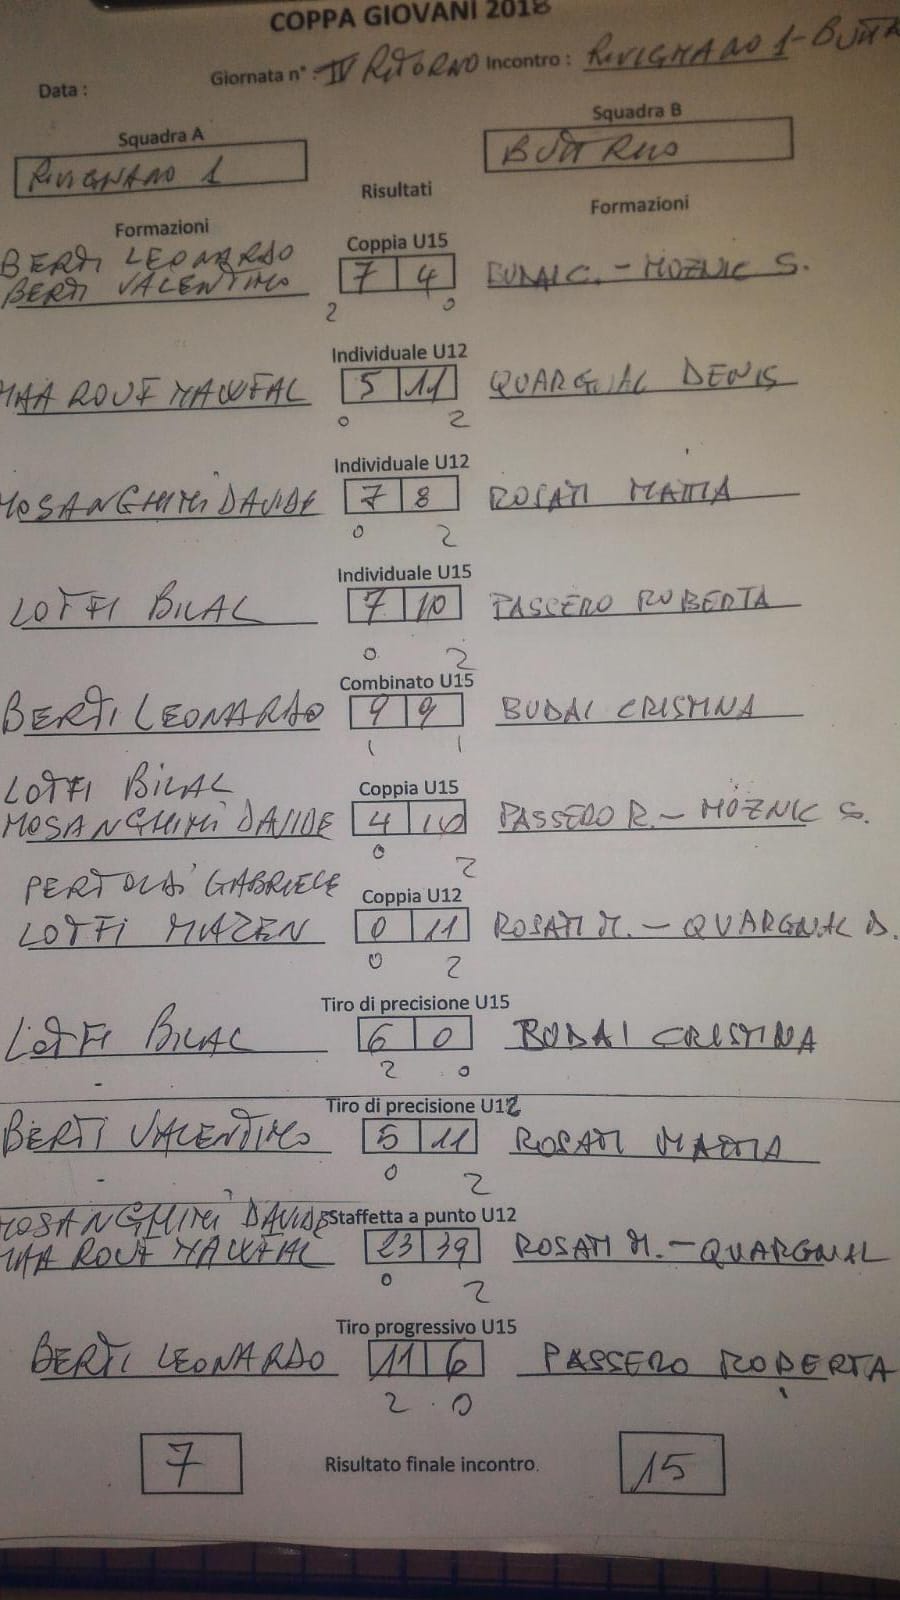 COPPA GIOVANI 2018
Data : Giornata n° : IV RITORNO Incontro : RIVIGNANO 1 - BUTTR
Squadra A Squadra B
RIVIGNANO 1 BUTTRIO
Risultati
Formazioni Formazioni
BERTI LEONARDO
BERTI VALENTINO
Coppia U15
7 4 BUDAI C. - MOZNIC S.
2 0
Individuale U12
5 11 QUARGNAL DENIS
0 2
Individuale U12
DAVIDE 7 8 ROSATI MATTIA
0 2
Individuale U15
LOTFI BILAL 7 10 PASSERO ROBERTA
0 2
Combinato U15
BERTI LEONARDO 9 9 BUDAI CRISTINA
1 1
LOTFI BILAL
Coppia U15
DAVIDE 4 10 PASSERO R. - MOZNIC S.
0 2
GABRIELE
Coppia U12
LOTFI MAZEN 0 11 ROSATI M. - QUARGNAL D.
0 2
Tiro di precisione U15
LOTFI BILAL 6 0 BUDAI CRISTINA
2 0
Tiro di precisione U12
BERTI VALENTINO 5 11 ROSATI MATTIA
0 2
DAVIDE Staffetta a punto U12
23 39 ROSATI M. - QUARGNAL
0 2
Tiro progressivo U15
BERTI LEONARDO 11 6 PASSERO ROBERTA
2 0
7 Risultato finale incontro. 15